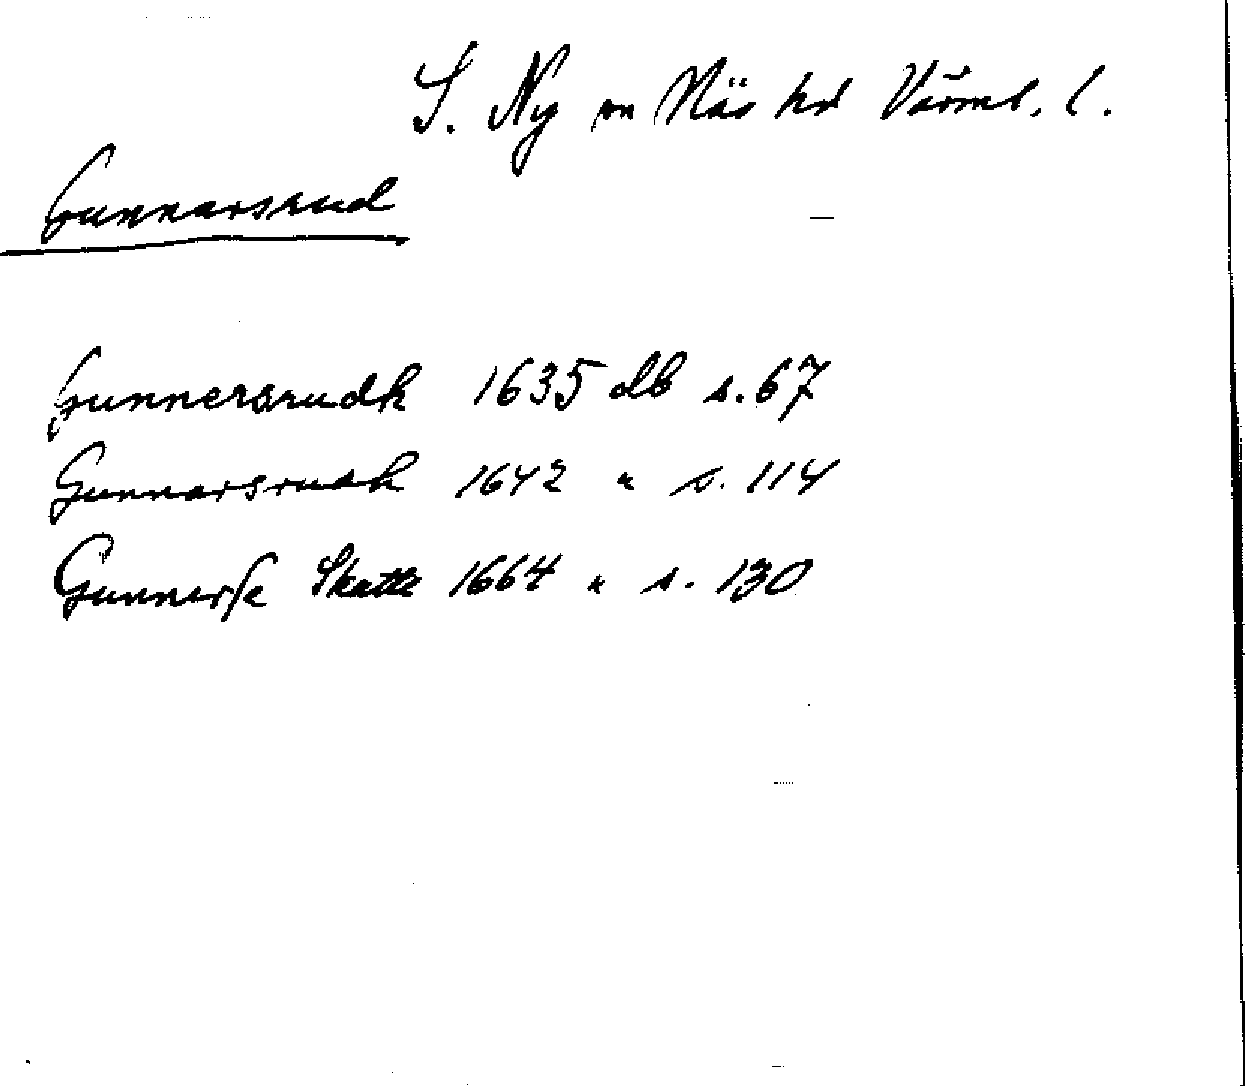 S. Ny sn Näs hd Värml. l.
Gunnarsrud
Gunnersrudh 1635 db s. 67
Gunnarsrudh 1642 " s. 114
Skatte 1664 " s. 130